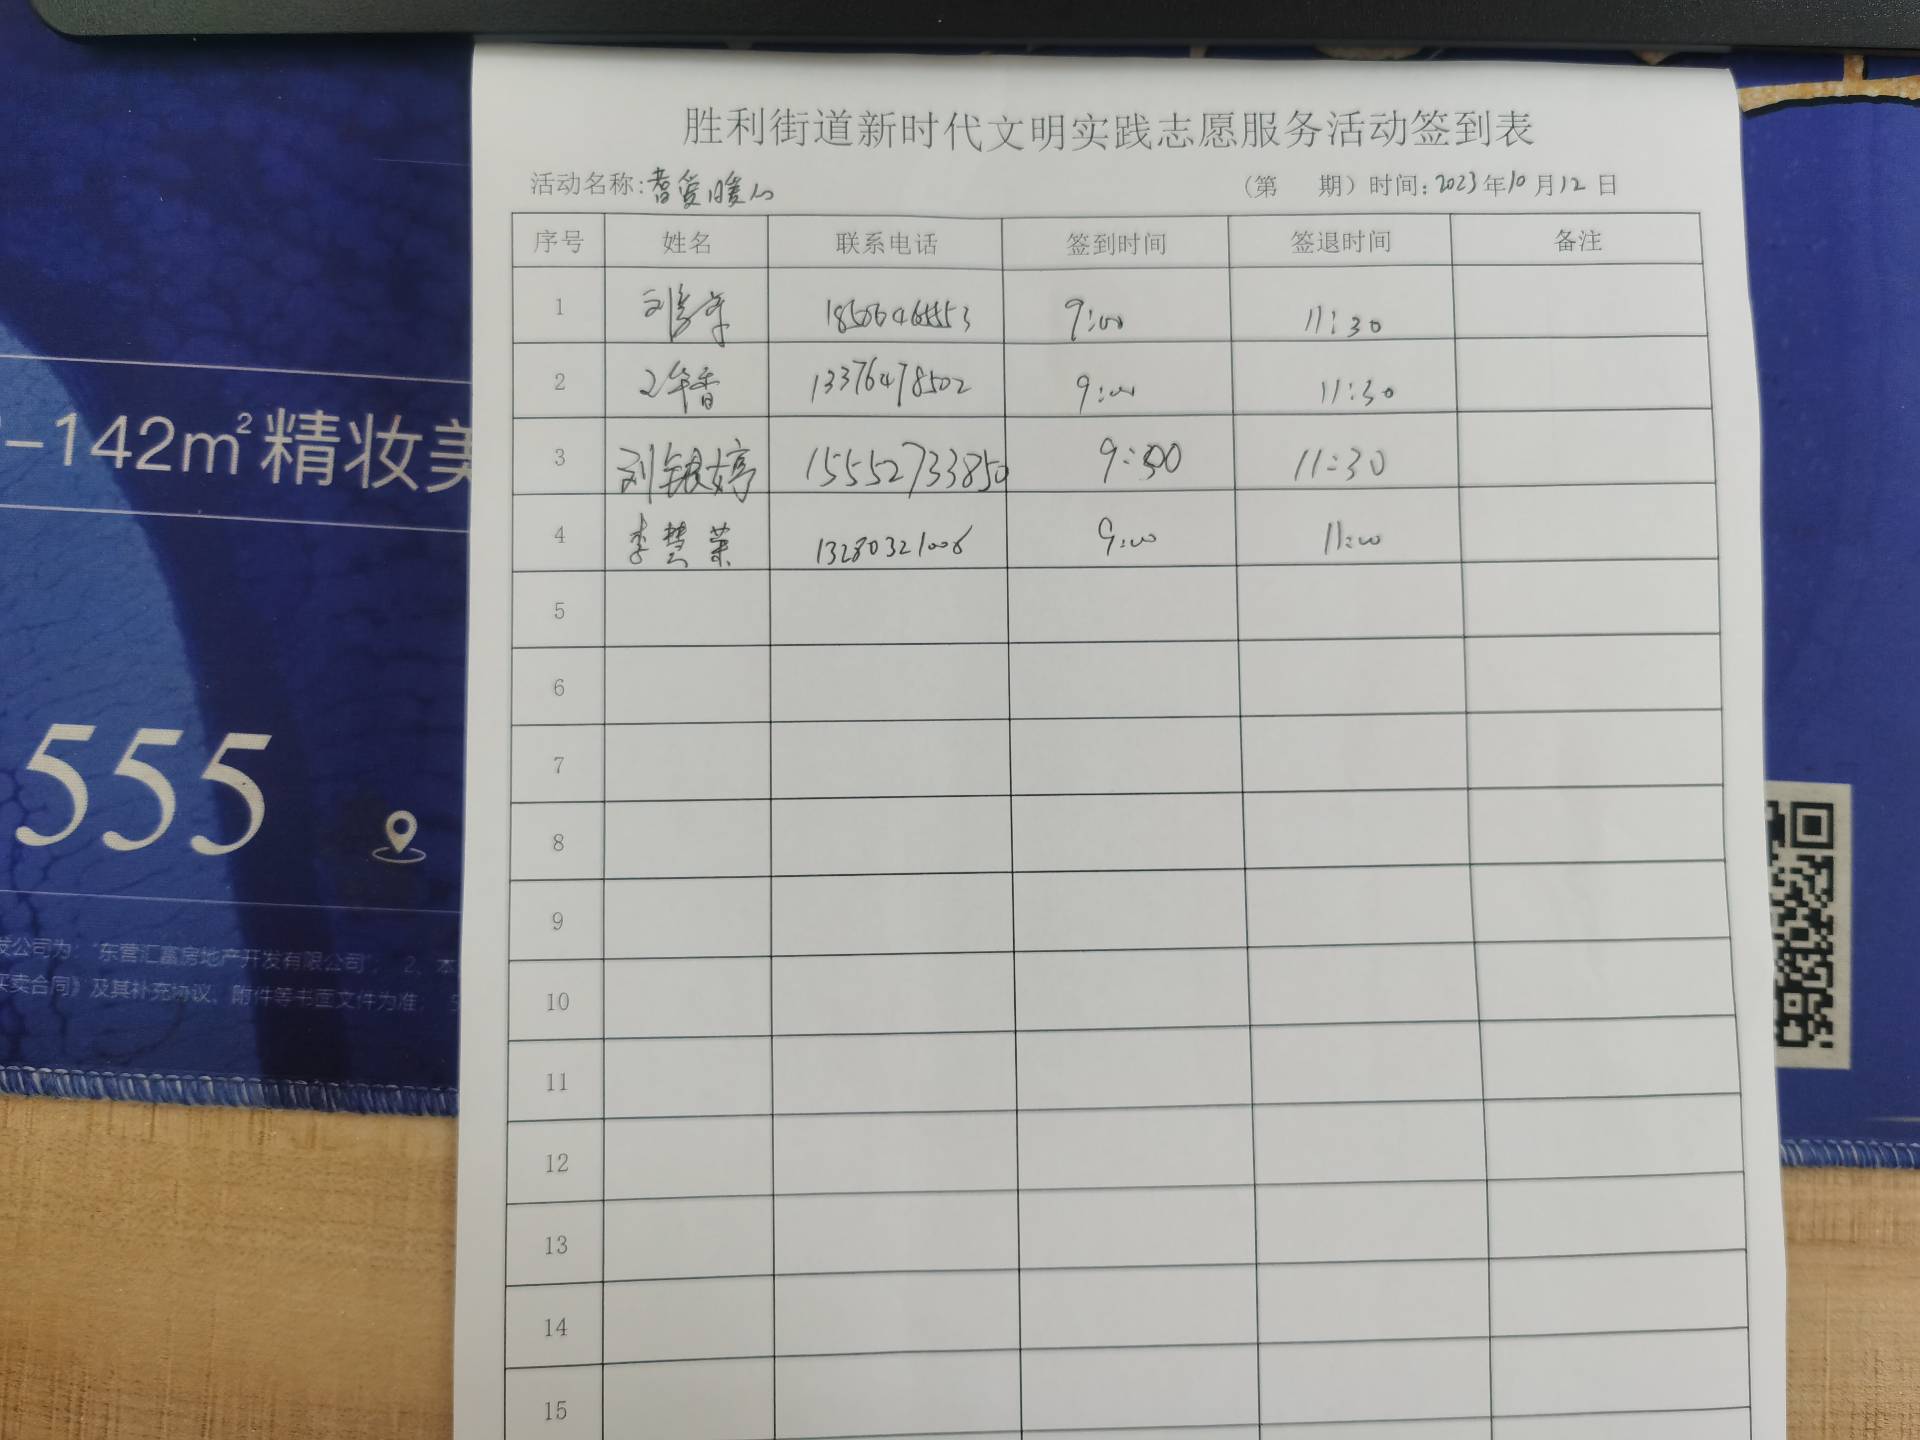 胜利街道新时代文明实践志愿服务活动签到表
活动名称: （第 期）时间:2023年10月12日
序号 姓名 联系电话 签到时间 签退时间 备注
1 9:00 11:30
2 13376478502 9:00 11:30
3 刘银婷 15552733850 9:00 11:30
4 李慧荣 13280321006 9:00 11:00
5
6
7
8
9
10
11
12
13
14
15
-142㎡精妆美
555
发公司为:“东营汇富房地产开发有限公司”; 2、本
买卖合同》及其补充协议、附件等书面文件为准;